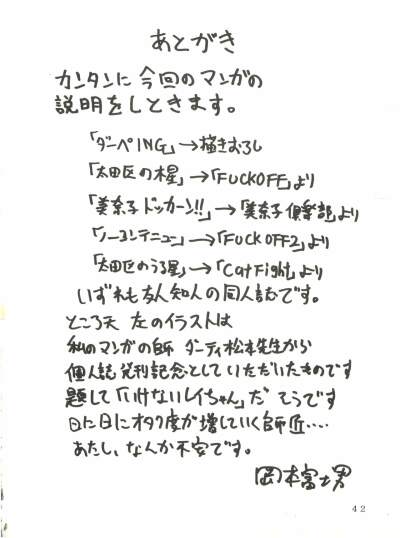 あとがき
カンタンに今回のマンガの
説明をしときます。
「ダーペING」→描きおろし
「太田区の木星」→「FUCKOFF」より
「美奈子ドッカーン!!」→「美奈子倶楽部」より
「ノーコンテニュー」→「FUCKOFF2」より
「太田区のうる星」→「Cat Fight」より
いずれも友人知人の同人誌です。
ところ天 左のイラストは
私のマンガの師 ダーティ松本先生から
個人誌発刊記念としていただいたものです
題して「いけないレイちゃん」だそうです
日に日にオタク度が増していく師匠‥‥
あたし、なんか不安です。
岡本富士男
42